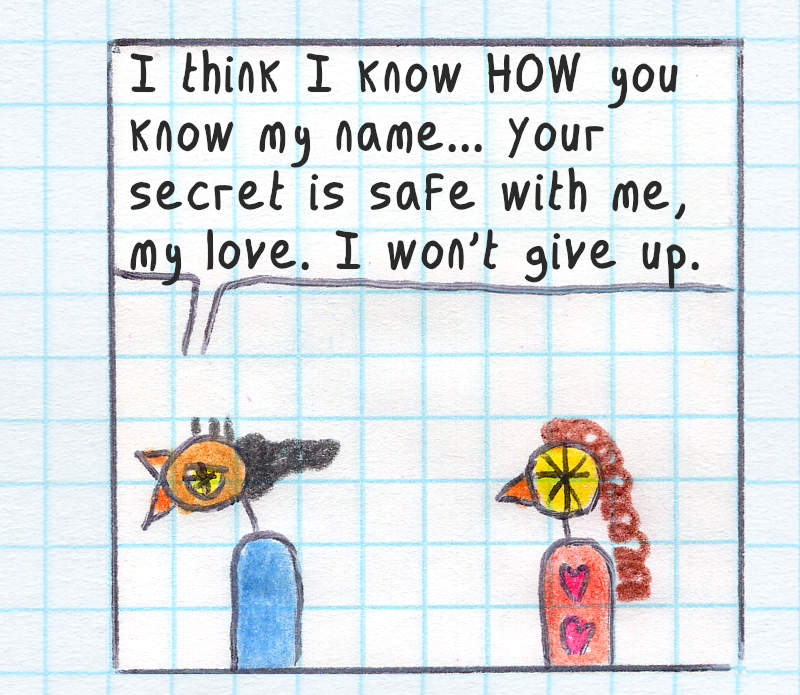 I think I know HOW you
know my name... Your
secret is safe with me,
my love. I won't give up.